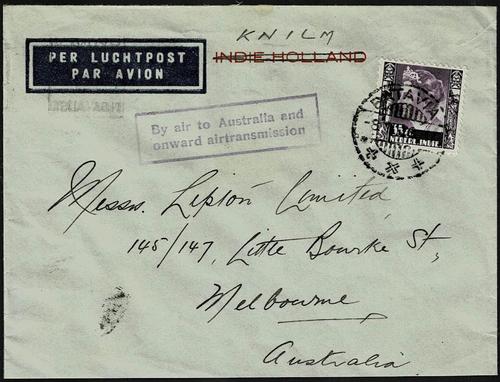 KNILM
INDIE HOLLAND
PER LUCHTPOST
PAR AVION
By air to Australia and
onward airtransmission
BATAVIA
NEDERL. INDIE
Messrs. Lipton Limited
145/147, Little Bourke St,
Melbourne
Australia